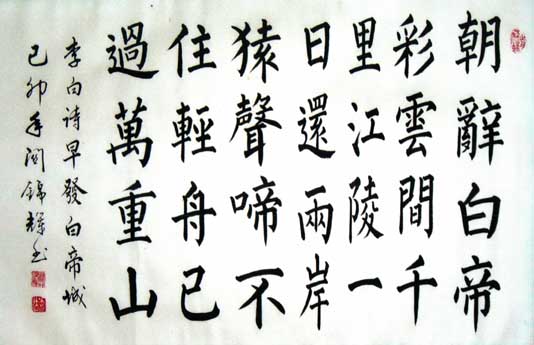 朝辭白帝
彩雲間千
里江陵一
日還兩岸
猿聲啼不
住輕舟已
過萬重山
李白诗早發白帝城
己卯年 錦 书